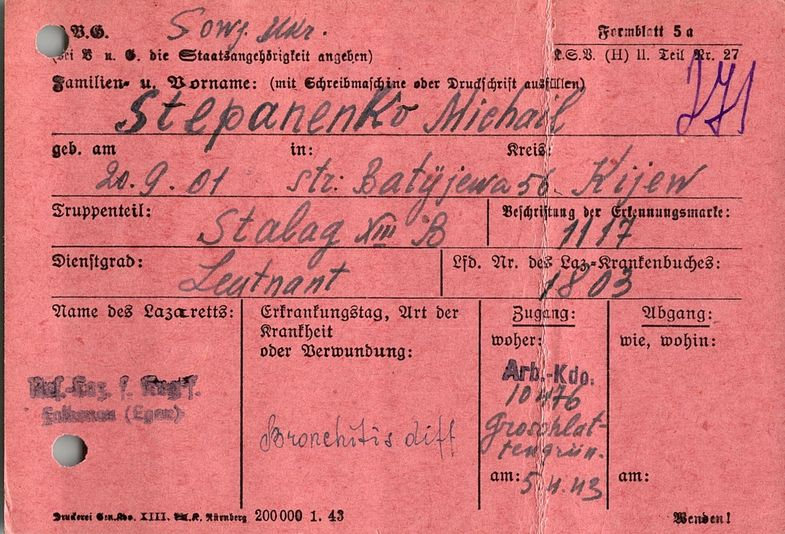 V.G. Sowj. Ukr. Formblatt 5a
(bei V u. G. die Staatsangehörigkeit angehen) L.S.V. (H) II. Teil Nr. 27
Familien- u. Vorname: (mit Schreibmaschine oder Druckschrift ausfüllen)
Stepanenko Michail 271
geb. am in: Kreis
20.9.01 str: Batyjewa 56 Kijew
Truppenteil: Beschriftung der Erkennungsmarke:
Stalag XIII B 1117
Dienstgrad: Lfd. Nr. des Laz.-Krankenbuches:
Leutnant 1803
Name des Lazaretts:
Res.-Laz. f. Kngf.
Falkenau (Eger)
Erkrankungstag, Art der
Krankheit
oder Verwundung:
Bronchitis diff
Zugang:
woher:
Arb.-Kdo.
10476
Groschlat-
tengrün.
am: 5.4.43
Abgang:
wie, wohin:
am:
Druckerei Gen.Kdo. XIII. Nürnberg 200000 1. 43 Wenden!